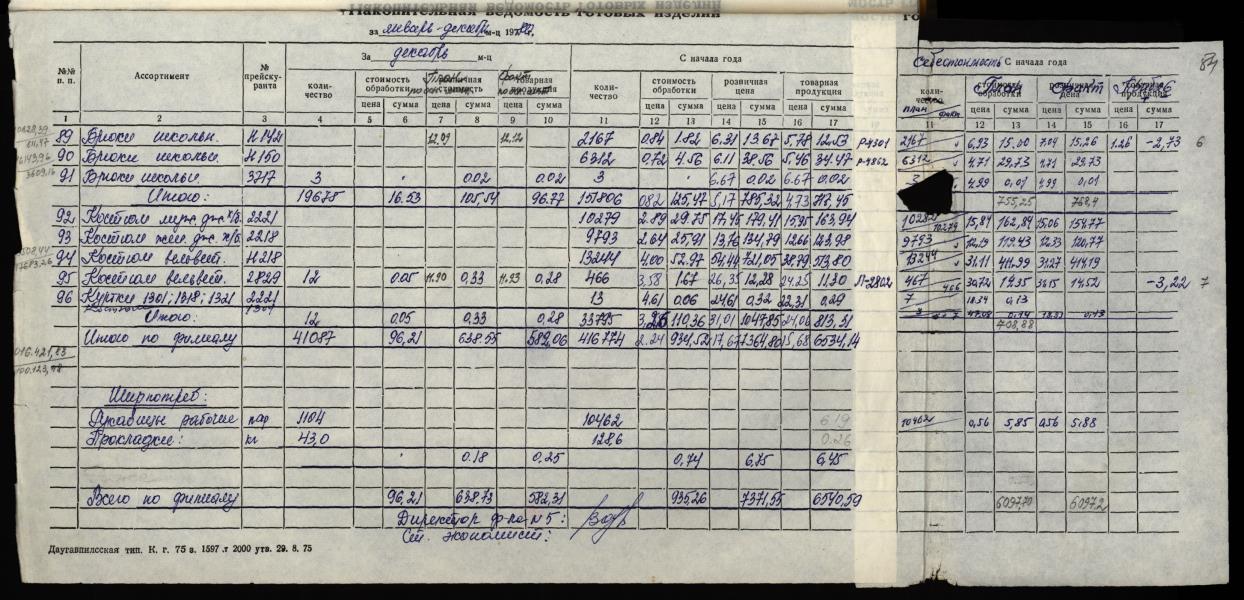 Накопительная ведомость готовых изделий
за январь-декабрь м-ц 19
За декабрь м-ц
С начала года
Себестоимость С начала года
84
№№ п. п.
Ассортимент
№ прейскуранта
количество
стоимость обработки
розничная стоимость
товарная продукция
количество
стоимость обработки
розничная цена
товарная продукция
план факт.
План Факт
цена сумма цена сумма цена сумма цена сумма цена сумма цена сумма цена сумма цена сумма цена сумма
1 2 3 4 5 6 7 8 9 10 11 12 13 14 15 16 17 11 12 13 14 15 16 17
89 Брюки школьн. 2167 0,84 1.82 6.31 13.67 5,78 12.53 Р-4301 2167 6,93 15,00 7.04 15,26 1.26 -2,73 6
90 Брюки школьн. 6312 0,72 4.56 6.11 38.56 5.46 34,47 6312 4,71 29,73 4,71 29.73
91 Брюки школьн. 3717 3 0.02 0.02 3 6.67 0,02 6.67 0.02 4,99 0,01 4,99 0,01
Итого: 19675 16.53 105.54 96.77 151806 0.82 125,47 5,17 785,32 4.73 718.45 755,25 768,4
92 Костюм муж. дж. х/б. 2221 10279 2.89 29.75 17.45 179,41 15,95 163,94 10282 10279 15,84 162,84 15,06 154.77
93 Костюм жен. дж. х/б. 2218 9793 2.64 25,91 13,76 134,79 12.66 123,98 9793 12,19 119.43 12.33 120,77
94 Костюм вельвет. 13244 4.00 52.97 54,44 721,05 38,79 513,80 13244 31.11 411,99 31,27 414,19
95 Костюм вельвет. 2839 12 0.05 11.90 0,33 11,93 0,28 466 3,58 1.67 26,35 12,28 24.25 11.30 П-2802 467 466 30,72 14.35 14,52 -3,22 7
96 Куртки 1301; 1318; 1321 2221 13 4,61 0.06 24,61 0,32 22,31 0,29 7 18.34 0,13
Итого: 12 0,05 0,33 0,28 33795 3,26 110,36 31,01 1047,85 24,06 813,31 708,88
Итого по филиалу 41087 96,21 638.55 582,06 416774 2.24 934,52 17,67 7364,80 15,68 6534,14
Ширпотреб:
Рукавицы рабочие пар 1104 10462 6.19 10462 0,56 5,85 0,56 5,88
Прокладки: кг 43,0 128,6 0.26
0.18 0,25 0,74 6,75 6,45
Всего по филиалу 96,21 638,73 582,31 935,26 7371,55 6540,59 6097,70 6097,2
Директор ф-ла N 5:
Ст. экономист:
Даугавпилсская тип. К. г. 75 з. 1597 .т 2000 утв. 29. 8. 75